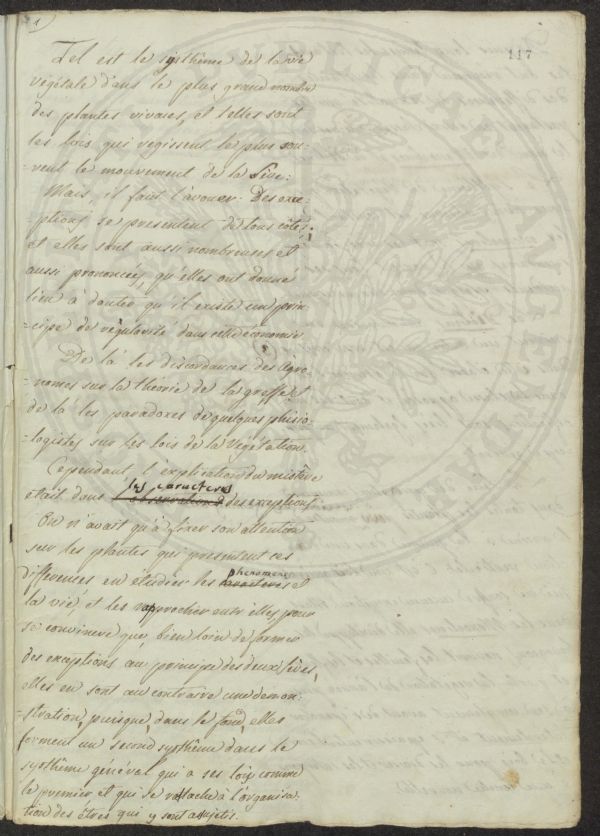 1)
117
Tel est le systhême de la vie
végétale dans le plus grand nombre
des plantes vivaces, et telles sont
les lois qui regissent le plus sou=
=vent le mouvement de la Seve.
Mais, il faut l'avouer. Des exce=
=ptions se presentent de tous côtés,
et elles sont aussi nombreuses et
aussi prononcées, qu'elles ont donné
lieu à douter qu'il existe un prin
=cipe de régularité dans cette économie
De là les discordances des Agro=
=nomes sur la théorie de la greffe, et
de là les paradoxes de quelques phisio=
=logistes sur les lois de la végétation.
Cependant l'explication du mistère
les caracteres
était dans l'observation des exceptions.
On n'avait qu'à fixer son attention
sur les plantes qui presentent ces
phenomenes
differences en étudier les caracteres et
la vie, et les rapprocher entr'elles, pour
se convaincre que, bien loin de former
des exceptions au principe des deux sèves,
elles en sont au contraire une demon=
=stration, puisque, dans le fond, elles
forment un second systhême dans le
systhême général qui a ses lois comme
le premier et qui se rattache à l'organisa=
tion des êtres qui y sont assujetis.